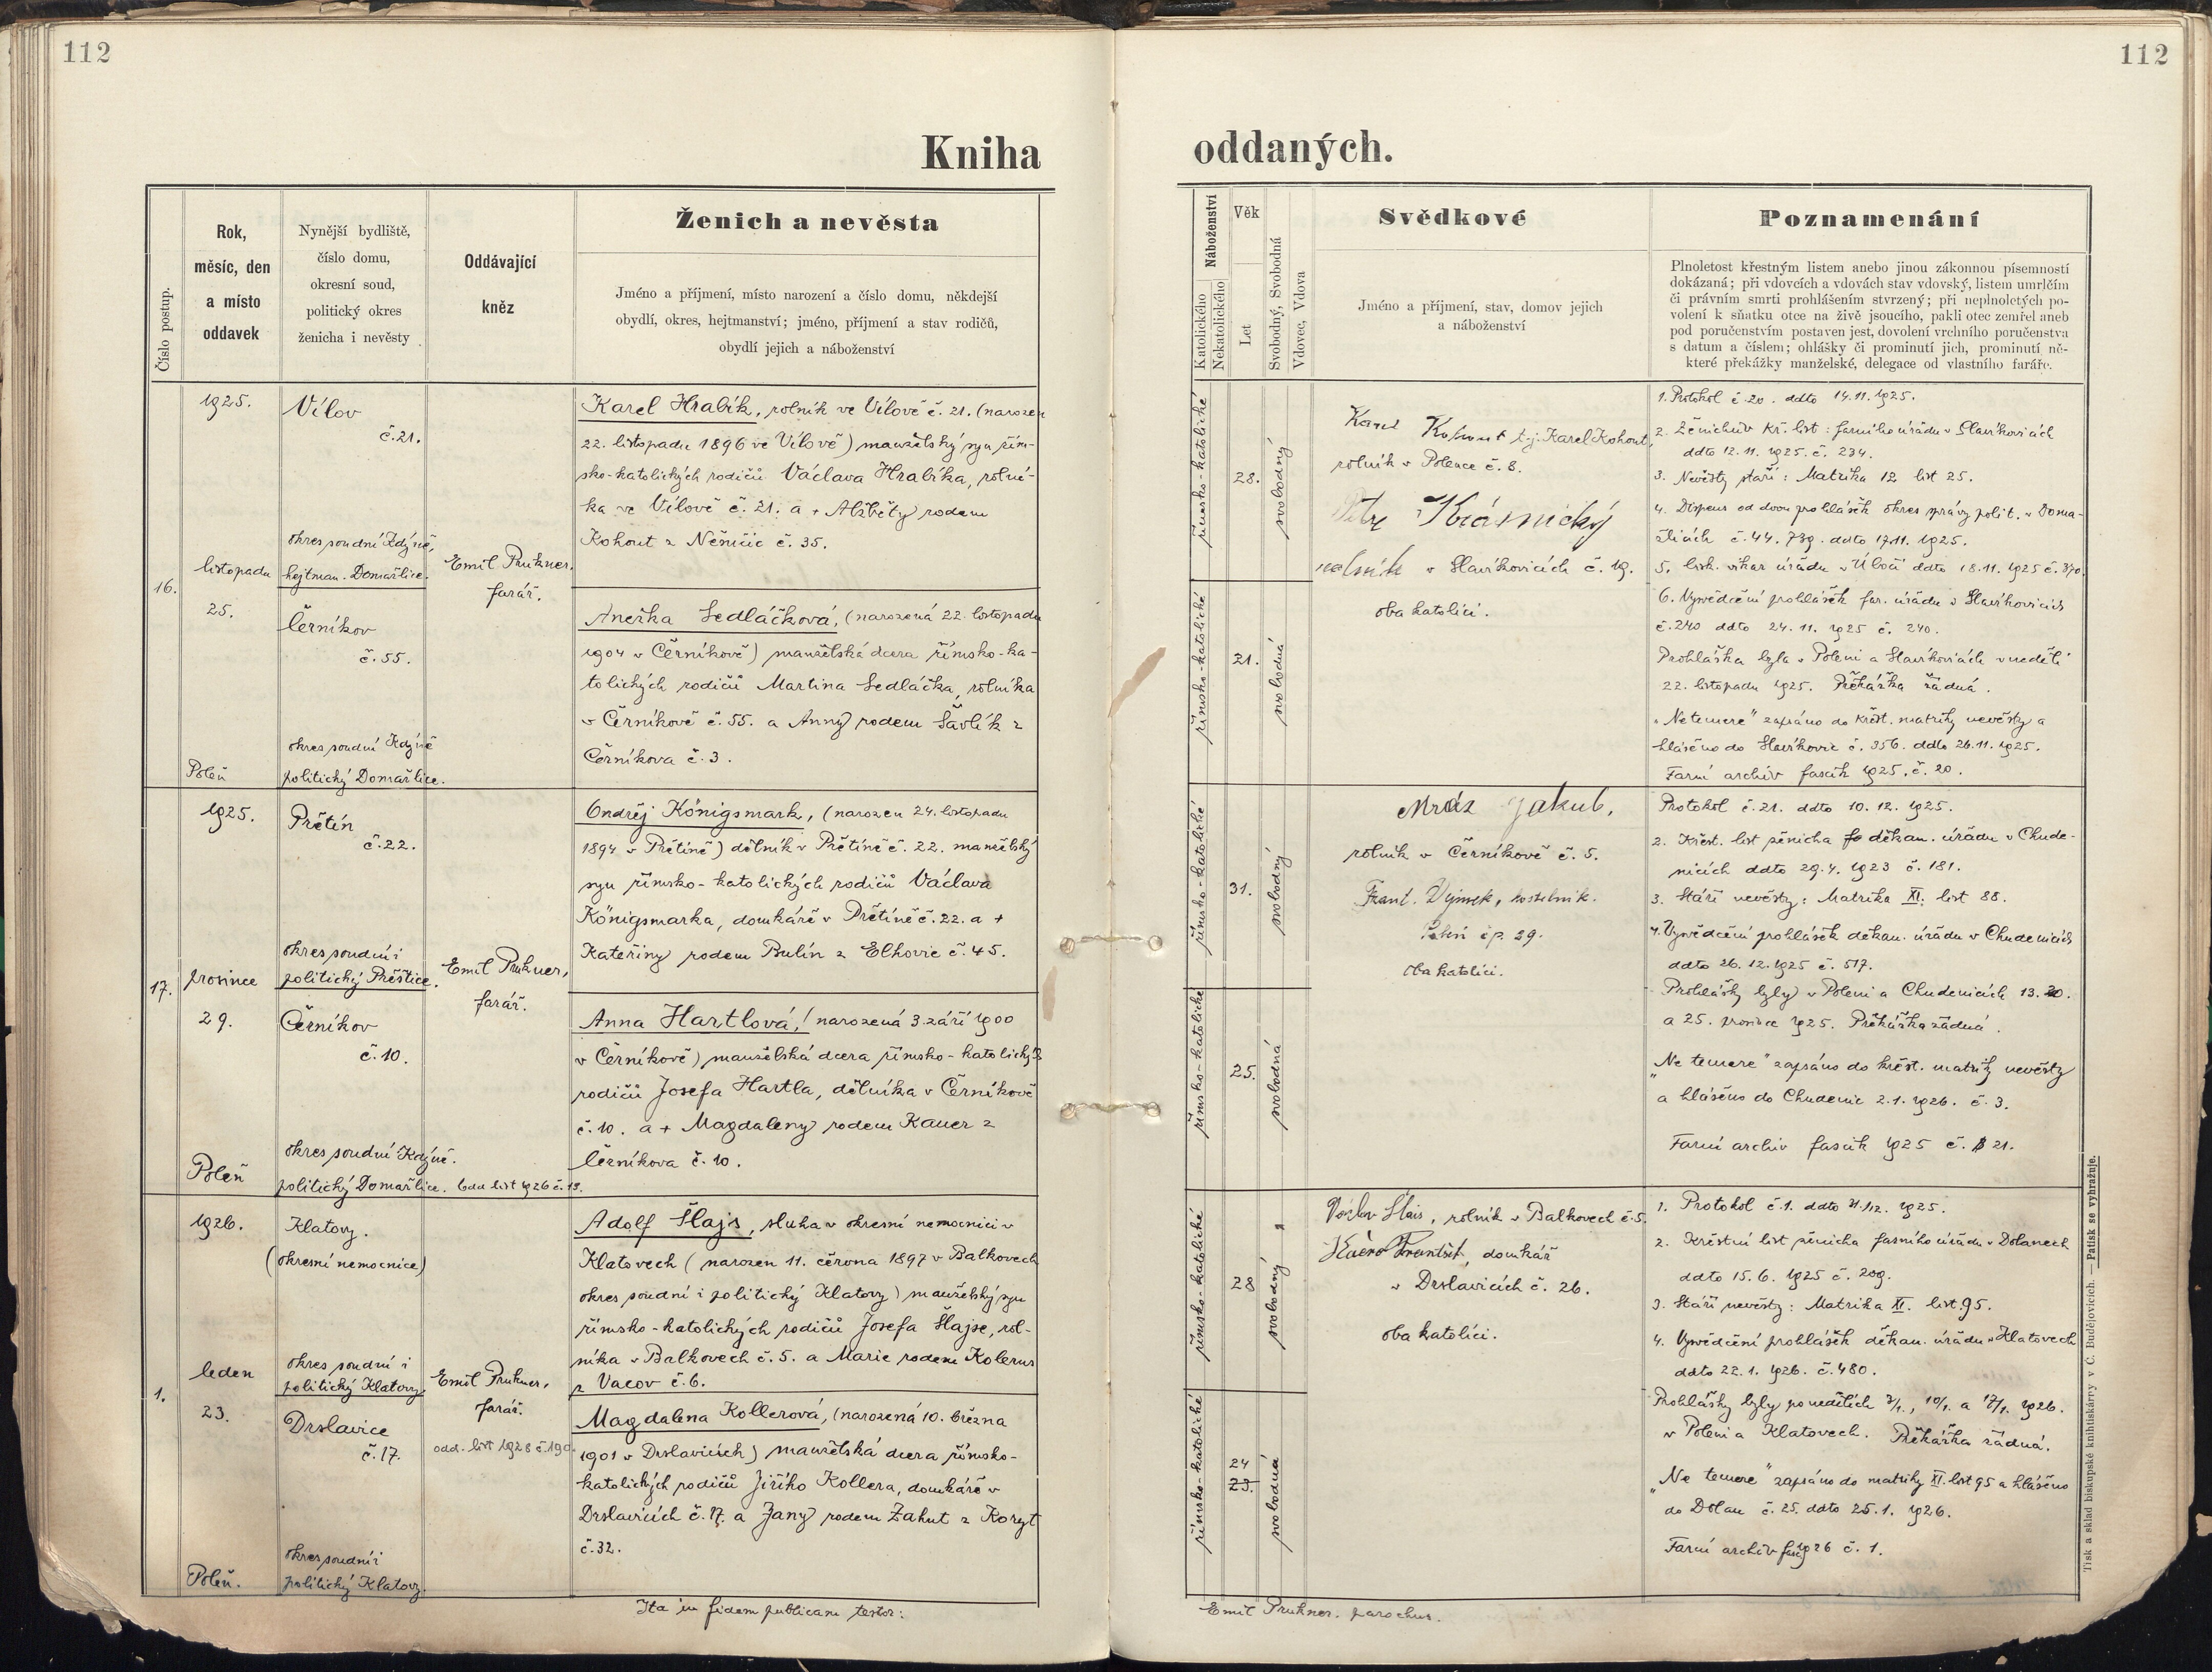 112
112
Kniha
oddaných.
Číslo postup.
Rok,
měsíc, den
a místo
oddavek
Nynější bydliště,
číslo domu,
okresní soud,
politický okres
ženicha i nevěsty
Oddávající
kněz
Ženich a nevěsta
Jméno a příjmení, místo narození a číslo domu, někdejší
obydlí, okres, hejtmanství; jméno, příjmení a stav rodičů,
obydlí jejich a náboženství
Náboženství
Katolického
Nekatolického
Věk
Let
Svobodný, Svobodná
Vdovec, Vdova
Svědkové
Jméno a příjmení, stav, domov jejich
a náboženství
Poznamenání
Plnoletost křestným listem anebo jinou zákonnou písemností
dokázaná; při vdovcích a vdovách stav vdovský, listem umrlčím
či právním smrti prohlášením stvrzený; při neplnoletých po-
volení k sňatku otce na živě jsoucího, pakli otec zemřel aneb
pod poručenstvím postaven jest, dovolení vrchního poručenstva
s datum a číslem; ohlášky či prominutí jich, prominutí ně-
které překážky manželské, delegace od vlastního faráře.
16.
1925.
listopadu
25.
Poleň
Vílov
č.21.
okres soudní Kdýně,
hejtman. Domažlice.
Černíkov
č.55.
okres soudní Kdýně
politický Domažlice.
Emil Prukner,
farář.
Karel Hrabík, rolník ve Vílově č. 21. (narozen
22. listopadu 1896 ve Vílově) manželský syn řím-
sko-katolických rodičů Václava Hrabíka, rolní-
ka ve Vílově č. 21. a + Alžběty rodem
Kohout z Němčic č. 35.
Anežka Sedláčková, (narozená 22. listopadu
1904 v Černíkově) manželská dcera římsko-ka-
tolických rodičů Martina Sedláčka, rolníka
v Černíkově č. 55. a Anny rodem Šavlík z
Černíkova č. 3.
římsko-katolické
28.
svobodný
římsko-katolické
21.
svobodná
Karel Kohout t.j. Karel Kohout,
rolník v Polence č. 8.
Petr Krásnický
rolník v Slavíkovicích č. 19.
oba katolíci.
1. Protokol č. 20. ddto 14.11.1925.
2. Ženichův kř. list: farního úřadu v Slavíkovicích
ddto 12.11.1925. č. 234.
3. Nevěsty stáří: Matrika 12 list 25.
4. Dispens od dvou prohlášek okres. správy polit. v Doma-
žlicích č. 44.739. ddto 17.11.1925.
5. bisk. vikar. úřadu v Úboči ddto 18.11.1925 č. 370.
6. Vysvědčení prohlášek far. úřadu v Slavíkovicích
č. 240 ddto 24.11.1925 č. 240.
Prohláška byla v Poleni a Slavíkovicích v neděli
22. listopadu 1925. Překážka žádná.
„Ne temere" zapsáno do křest. matriky nevěsty a
hlášeno do Slavíkovic č. 356. ddto 26.11.1925.
Farní archiv fascik. 1925. č. 20.
17.
1925.
prosince
29.
Poleň
Přetín
č.22.
okres soudní i
politický Přeštice.
Černíkov
č.10.
okres soudní Kdýně.
politický Domažlice.
Emil Prukner,
farář.
Odd. list 1926 č. 13.
Ondřej Königsmark, (narozen 24. listopadu
1894 v Přetíně) dělník v Přetíně č. 22. manželský
syn římsko-katolických rodičů Václava
Königsmarka, domkáře v Přetíně č. 22. a +
Kateřiny rodem Bulín z Elhovic č. 45.
Anna Hartlová, (narozená 3. září 1900
v Černíkově) manželská dcera římsko-katolických
rodičů Josefa Hartla, dělníka v Černíkově
č. 10. a + Magdaleny rodem Kauer z
Černíkova č. 10.
římsko-katolické
31.
svobodný
římsko-katolické
25.
svobodná
Mráz Jakub,
rolník v Černíkově č. 5.
Frant. Vejmek, kostelník.
Poleň čp. 29.
oba katolíci.
Protokol č. 21. ddto 10.12.1925.
2. Křest. list ženicha děkan. úřadu v Chude-
nicích ddto 29.4.1923 č. 181.
3. Stáří nevěsty: Matrika XI. list 88.
4. Vysvědčení prohlášek děkan. úřadu v Chudenicích
ddto 26.12.1925 č. 517.
Prohlášky byly v Poleni a Chudenicích 13. 20.
a 25. prosince 1925. Překážka žádná.
„Ne temere" zapsáno do křest. matriky nevěsty
a hlášeno do Chudenic 2.1.1926. č. 3.
Farní archiv fascik 1925 č. 21.
1.
1926.
leden
23.
Poleň.
Klatovy.
(okresní nemocnice)
okres soudní i
politický Klatovy.
Drslavice
č.17.
okres soudní i
politický Klatovy.
Emil Prukner,
farář.
odd. list 1928 č. 190.
Adolf Šlajs, sluha v okresní nemocnici v
Klatovech (narozen 11. června 1897 v Balkovech
okres soudní i politický Klatovy) manželský syn
římsko-katolických rodičů Josefa Šlajse, rol-
níka v Balkovech č. 5. a Marie rodem Kolerus
z Vacov č. 6.
Magdalena Kollerová, (narozená 10. března
1901 v Drslavicích) manželská dcera římsko-
katolických rodičů Jiřího Kollera, domkáře v
Drslavicích č. 17. a Jany rodem Žahut z Koryt
č. 32.
římsko-katolické
28
svobodný
římsko-katolické
24
23.
svobodná
Václav Šlais, rolník v Balkovech č. 5.
František, domkář
v Drslavicích č. 26.
oba katolíci.
1. Protokol č. 1. ddto 31.12.1925.
2. Křestní list ženicha farního úřadu v Dolanech
ddto 15.6.1925 č. 209.
3. Stáří nevěsty: Matrika XI. list 95.
4. Vysvědčení prohlášek děkan. úřadu v Klatovech
ddto 22.1.1926. č. 480.
Prohlášky byly po nedělích 3/1., 10/1. a 17/1. 1926.
v Poleni a Klatovech. Překážka žádná.
„Ne temere" zapsáno do matriky XI. list 95 a hlášeno
do Dolan č. 25. ddto 25.1.1926.
Farní archiv fasc. 1926 č. 1.
Ita in fidem publicam testor:
Emil Prukner. parochus.
Tisk a sklad biskupské knihtiskárny v Č. Budějovicích. — Patisk se vyhražuje.